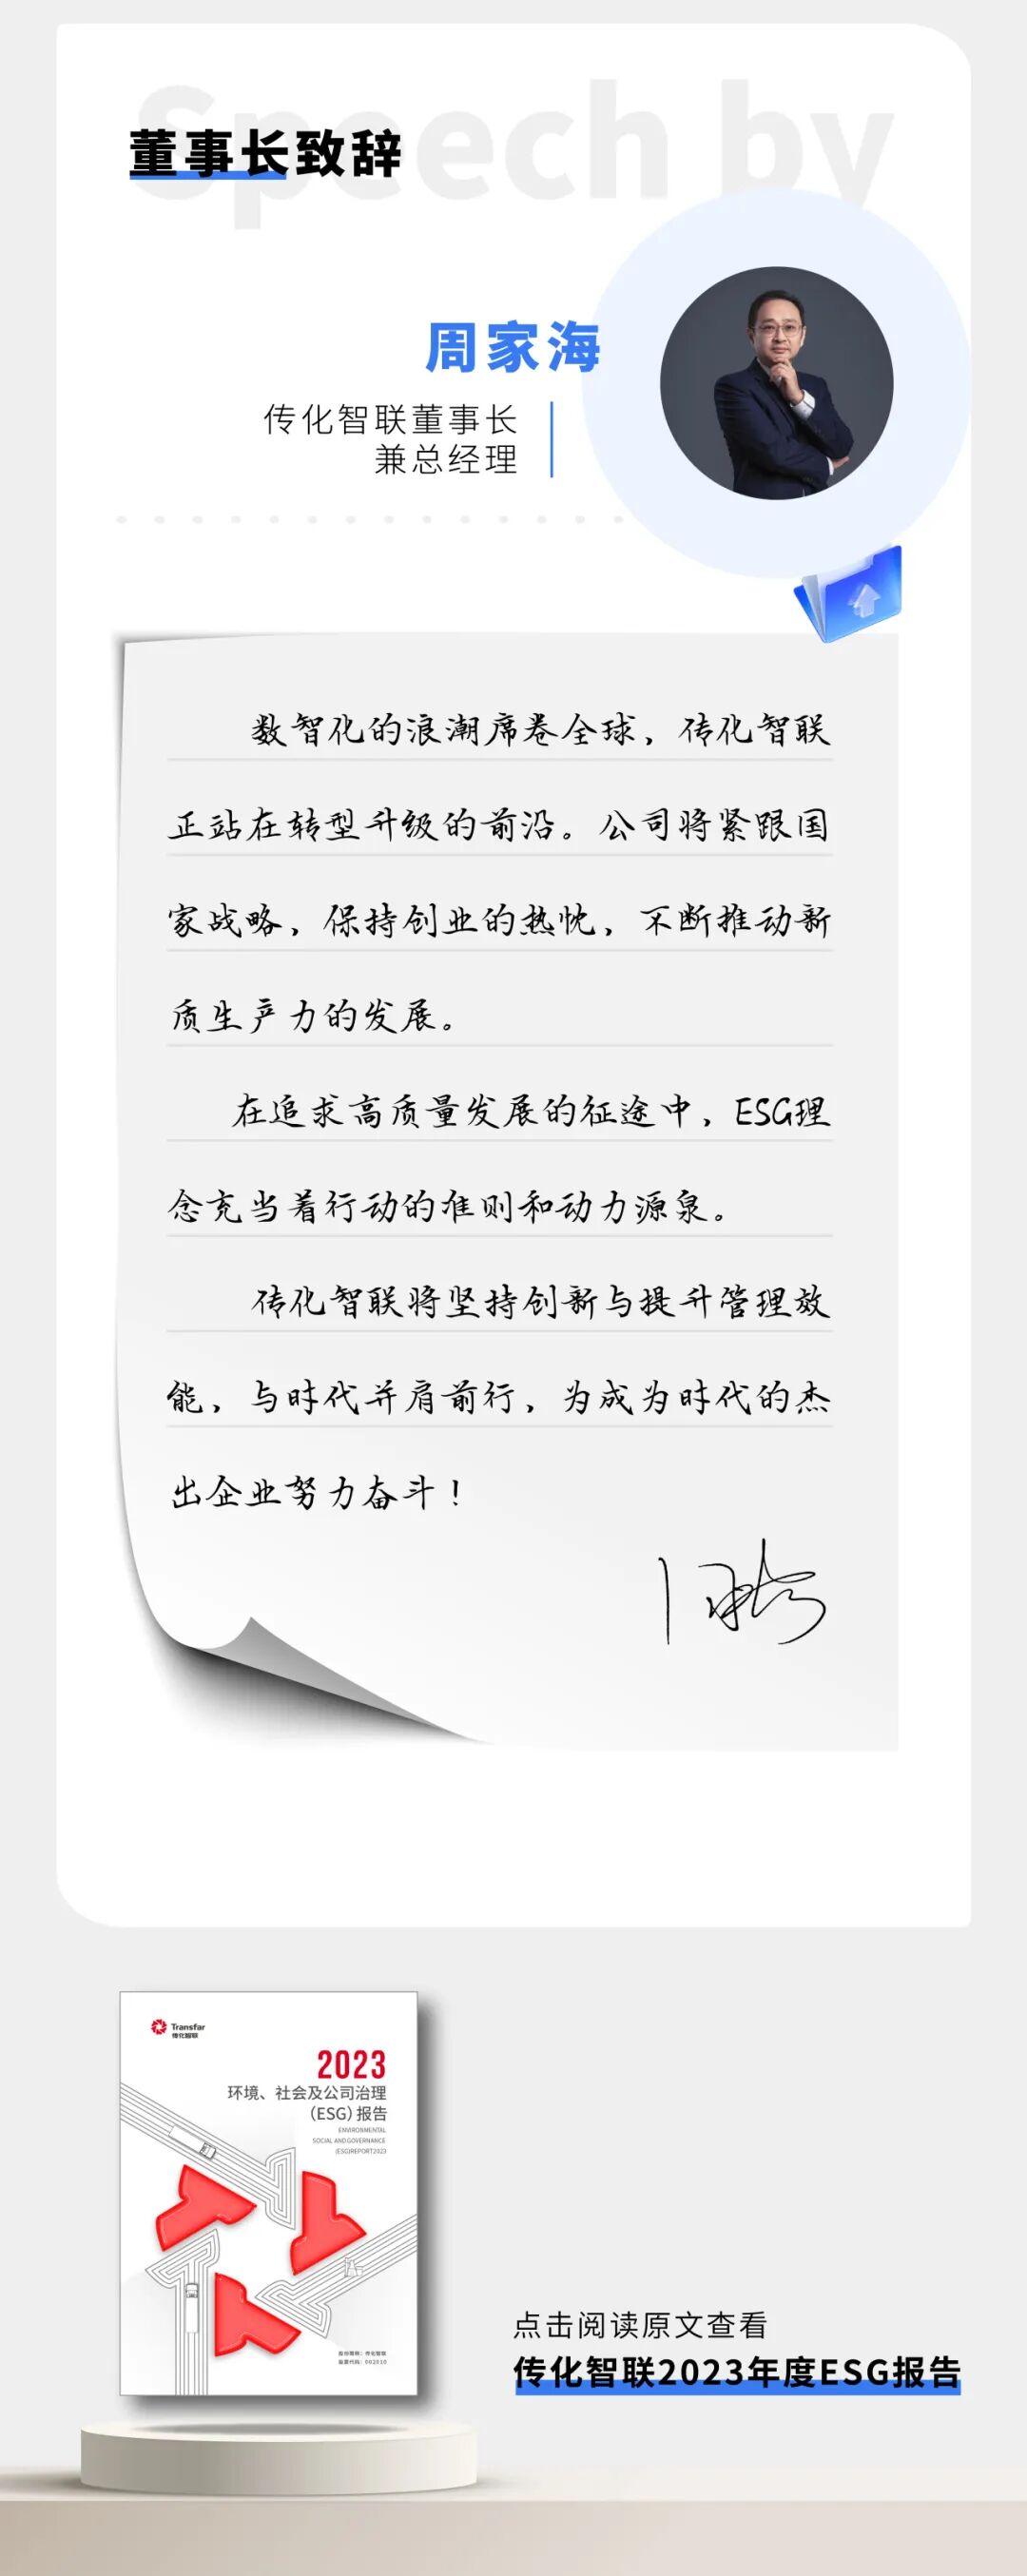 Speech by
董事长致辞
周家海
传化智联董事长
兼总经理
数智化的浪潮席卷全球，传化智联
正站在转型升级的前沿。公司将紧跟国
家战略，保持创业的热忱，不断推动新
质生产力的发展。
在追求高质量发展的征途中，ESG理
念充当着行动的准则和动力源泉。
传化智联将坚持创新与提升管理效
能，与时代并肩前行，为成为时代的杰
出企业努力奋斗！
Transfar
传化智联
2023
环境、社会及公司治理
（ESG）报告
ENVIRONMENTAL
SOCIAL AND GOVERNANCE
(ESG)REPORT2023
股份简称：传化智联
股票代码：002010
点击阅读原文查看
传化智联2023年度ESG报告